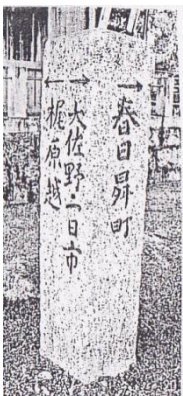 →春日昇町
→大佐野二日市
←梶原越